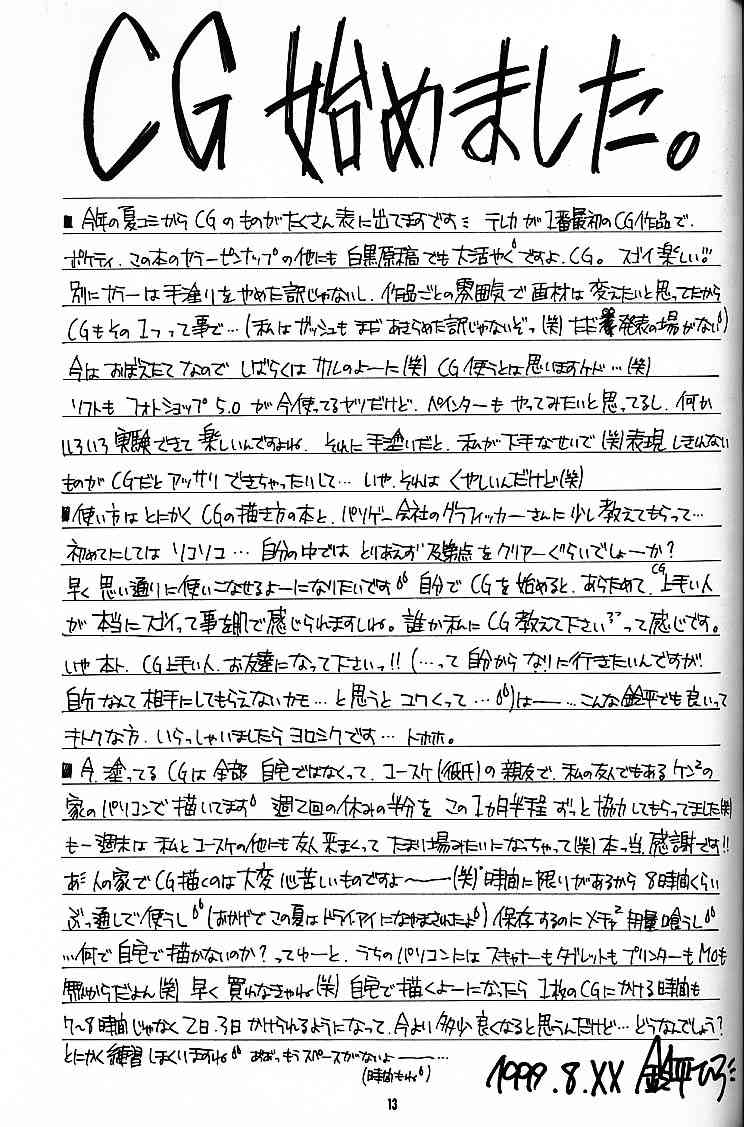 CG 始めました。
■今年の夏コミから CG のものがたくさん表に出てますですミ テレカが1番最初のCG作品で、
ポケティ、この本のカラーピンナップの他にも 白黒原稿でも大活やくですよ、CG。 スゴイ楽しい!!
別にカラーは手塗りをやめた訳じゃないし、作品ごとの雰囲気で画材は変えたいと思ってたから
CGもその1つって事で…(私はガッシュもまだあきらめた訳じゃないぞっ(笑) ただ発表の場がない)
今はおぼえたてなので しばらくはサルのよーに(笑) CG使うとは思いますケド…(笑)
ソフトも フォトショップ 5.0 が今使ってるヤツだけど、ペインターも やってみたいと思ってるし、何か
いろいろ実験できて楽しいんですよね、それに手塗りだと、私が下手なせいで(笑)表現しきれない
ものがCGだとアッサリできちゃったりして… いや、それは くやしいんだけど(笑)
■使い方はとにかく CGの描き方の本と、パソゲー会社のグラフィッカーさんに少し教えてもらって…
初めてにしては ソコソコ… 自分の中では とりあえず 及第点をクリアーぐらいでしょーか?
早く思い通りに使いこなせるよーになりたいです 自分で CGを始めると、あらためて、CG上手い人
が 本当にスゴイって事を肌で感じられますしね。誰か私に CG教えて下さい って感じです。
いや ホント、CG上手い人、お友達になって下さいっ!! (…って 自分から なりに行きたいんですが、
自分なんて相手にしてもらえないカモ…と思うと コワくって…)は――…こんな鈴平でも良いって
キトクな方、いらっしゃいましたら ヨロシクです… トホホ。
■今、塗ってる CGは全部 自宅ではなくって、コースケ(彼氏)の親友で、私の友人でもあるケン²の
家のパソコンで描いてます 週2回の休みの半分を この1カ月半程 ずっと協力してもらってました(笑)
も一週末は 私とコースケの他にも友人来まくって たまり場みたいになっちゃって(笑)本っ当、感謝です!!
あ、人の家でCG描くのは大変 心苦しいものですよ〜――(笑)時間に限りがあるから 8時間くらい
ぶっ通しで使うし(おかげでこの夏はドライアイになやまされたよ)保存するのに メチャ² 用量喰うし
…何で自宅で描かないのか?ってゆーと、うちのパソコンには スキャナーもタブレットもプリンターもMOも
無いからだよん(笑) 早く買わなきゃね(笑) 自宅で描くよーになったら 1枚のCGにかける時間も
7〜8時間じゃなく 2日、3日 かけられるようになって、今より多少良くなると思うんだけど…どうなんでしょう?
とにかく練習しまくいますね ああっもうスペースがないよ――…
(時間もね)
1999.8.XX 鈴平ひろミ
13